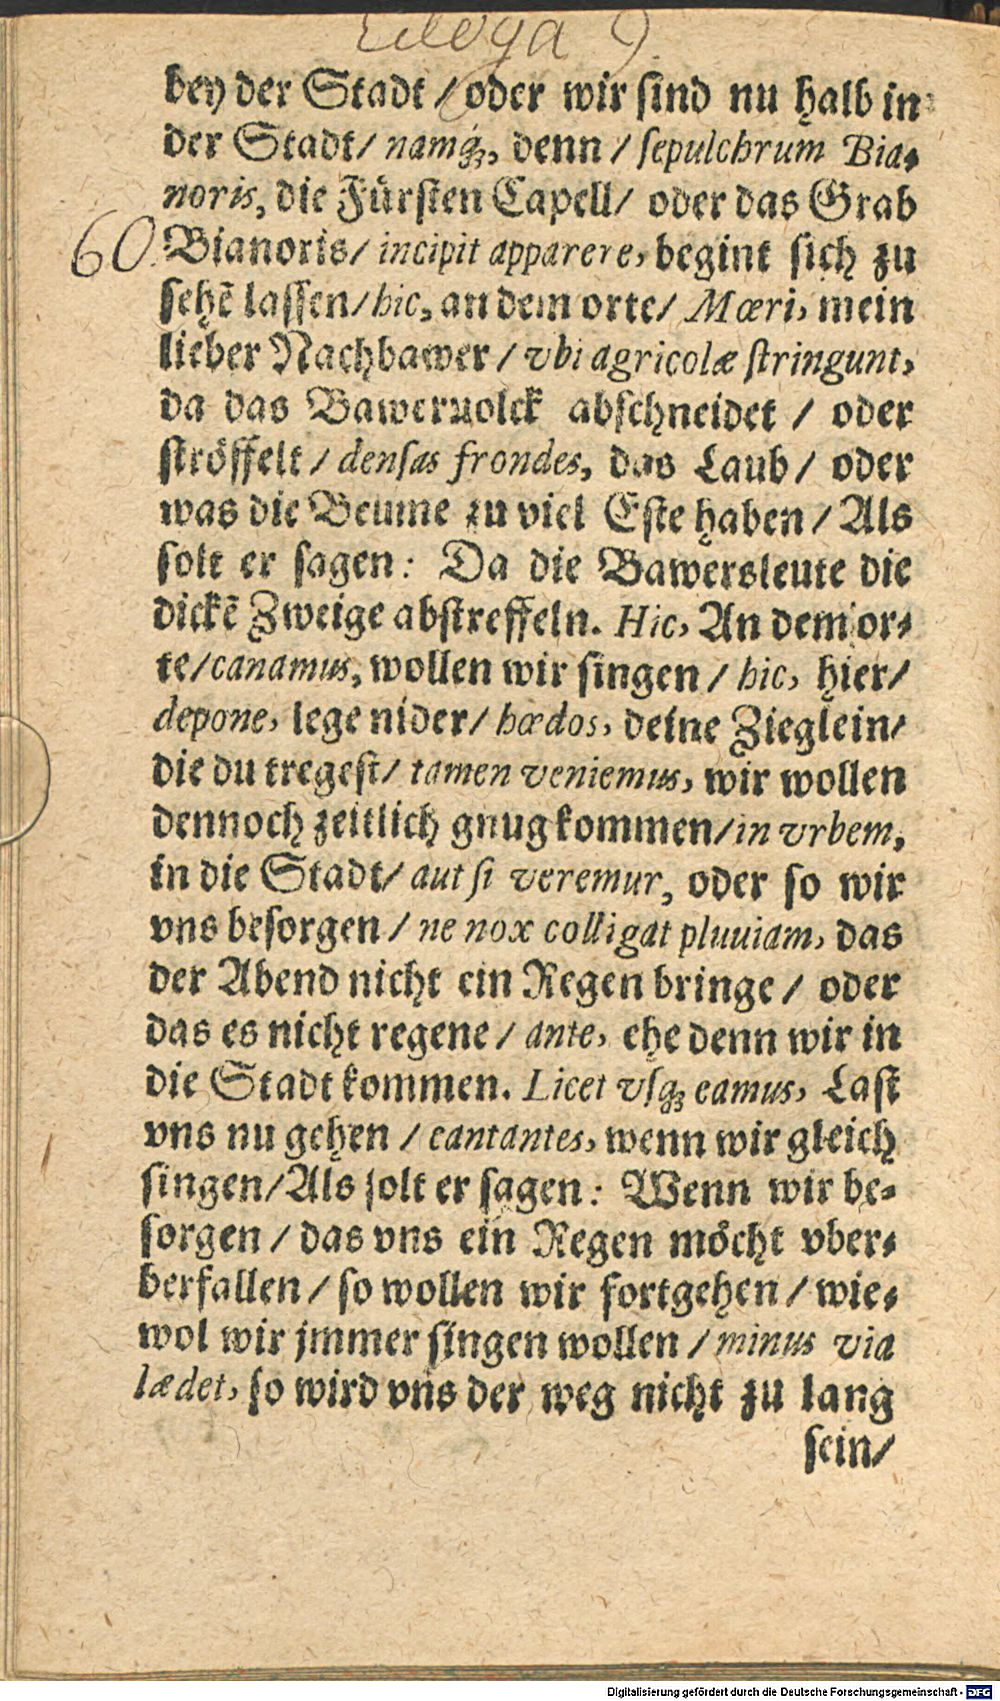 Ecloga 9
bey der Stadt / oder wir ſind nu halb in
der Stadt / namq́ꝫ, denn / ſepulchrum Bia-
noris, die Fürſten Capell / oder das Grab
60. Bianoris / incipit apparere, begint ſich zu
ſehē laſſen / hic, an dem orte / Mœri, mein
lieber Nachbawer / vbi agricolæ ſtringunt,
da das Baweruolck abſchneidet / oder
ſtröffelt / denſas frondes, das Laub / oder
was die Beume zu viel Eſte haben / Als
ſolt er ſagen: Da die Bawersleute die
dickē Zweige abſtreffeln. Hic, An dem or-
te / canamus, wollen wir ſingen / hic, hier /
depone, lege nider / hœdos, deine Zieglein /
die du tregeſt / tamen veniemus, wir wollen
dennoch zeitlich gnug kommen / in vrbem,
in die Stadt / aut ſi veremur, oder ſo wir
vns beſorgen / ne nox colligat pluuiam, das
der Abend nicht ein Regen bringe / oder
das es nicht regene / ante, ehe denn wir in
die Stadt kommen. Licet vſqꝫ eamus, Laſt
vns nu gehen / cantantes, wenn wir gleich
ſingen / Als ſolt er ſagen: Wenn wir be-
ſorgen / das vns ein Regen möcht vber-
berfallen / ſo wollen wir fortgehen / wie-
wol wir jmmer ſingen wollen / minus via
lædet, ſo wird vns der weg nicht zu lang
ſein /
Digitalisierung gefördert durch die Deutsche Forschungsgemeinschaft - DFG